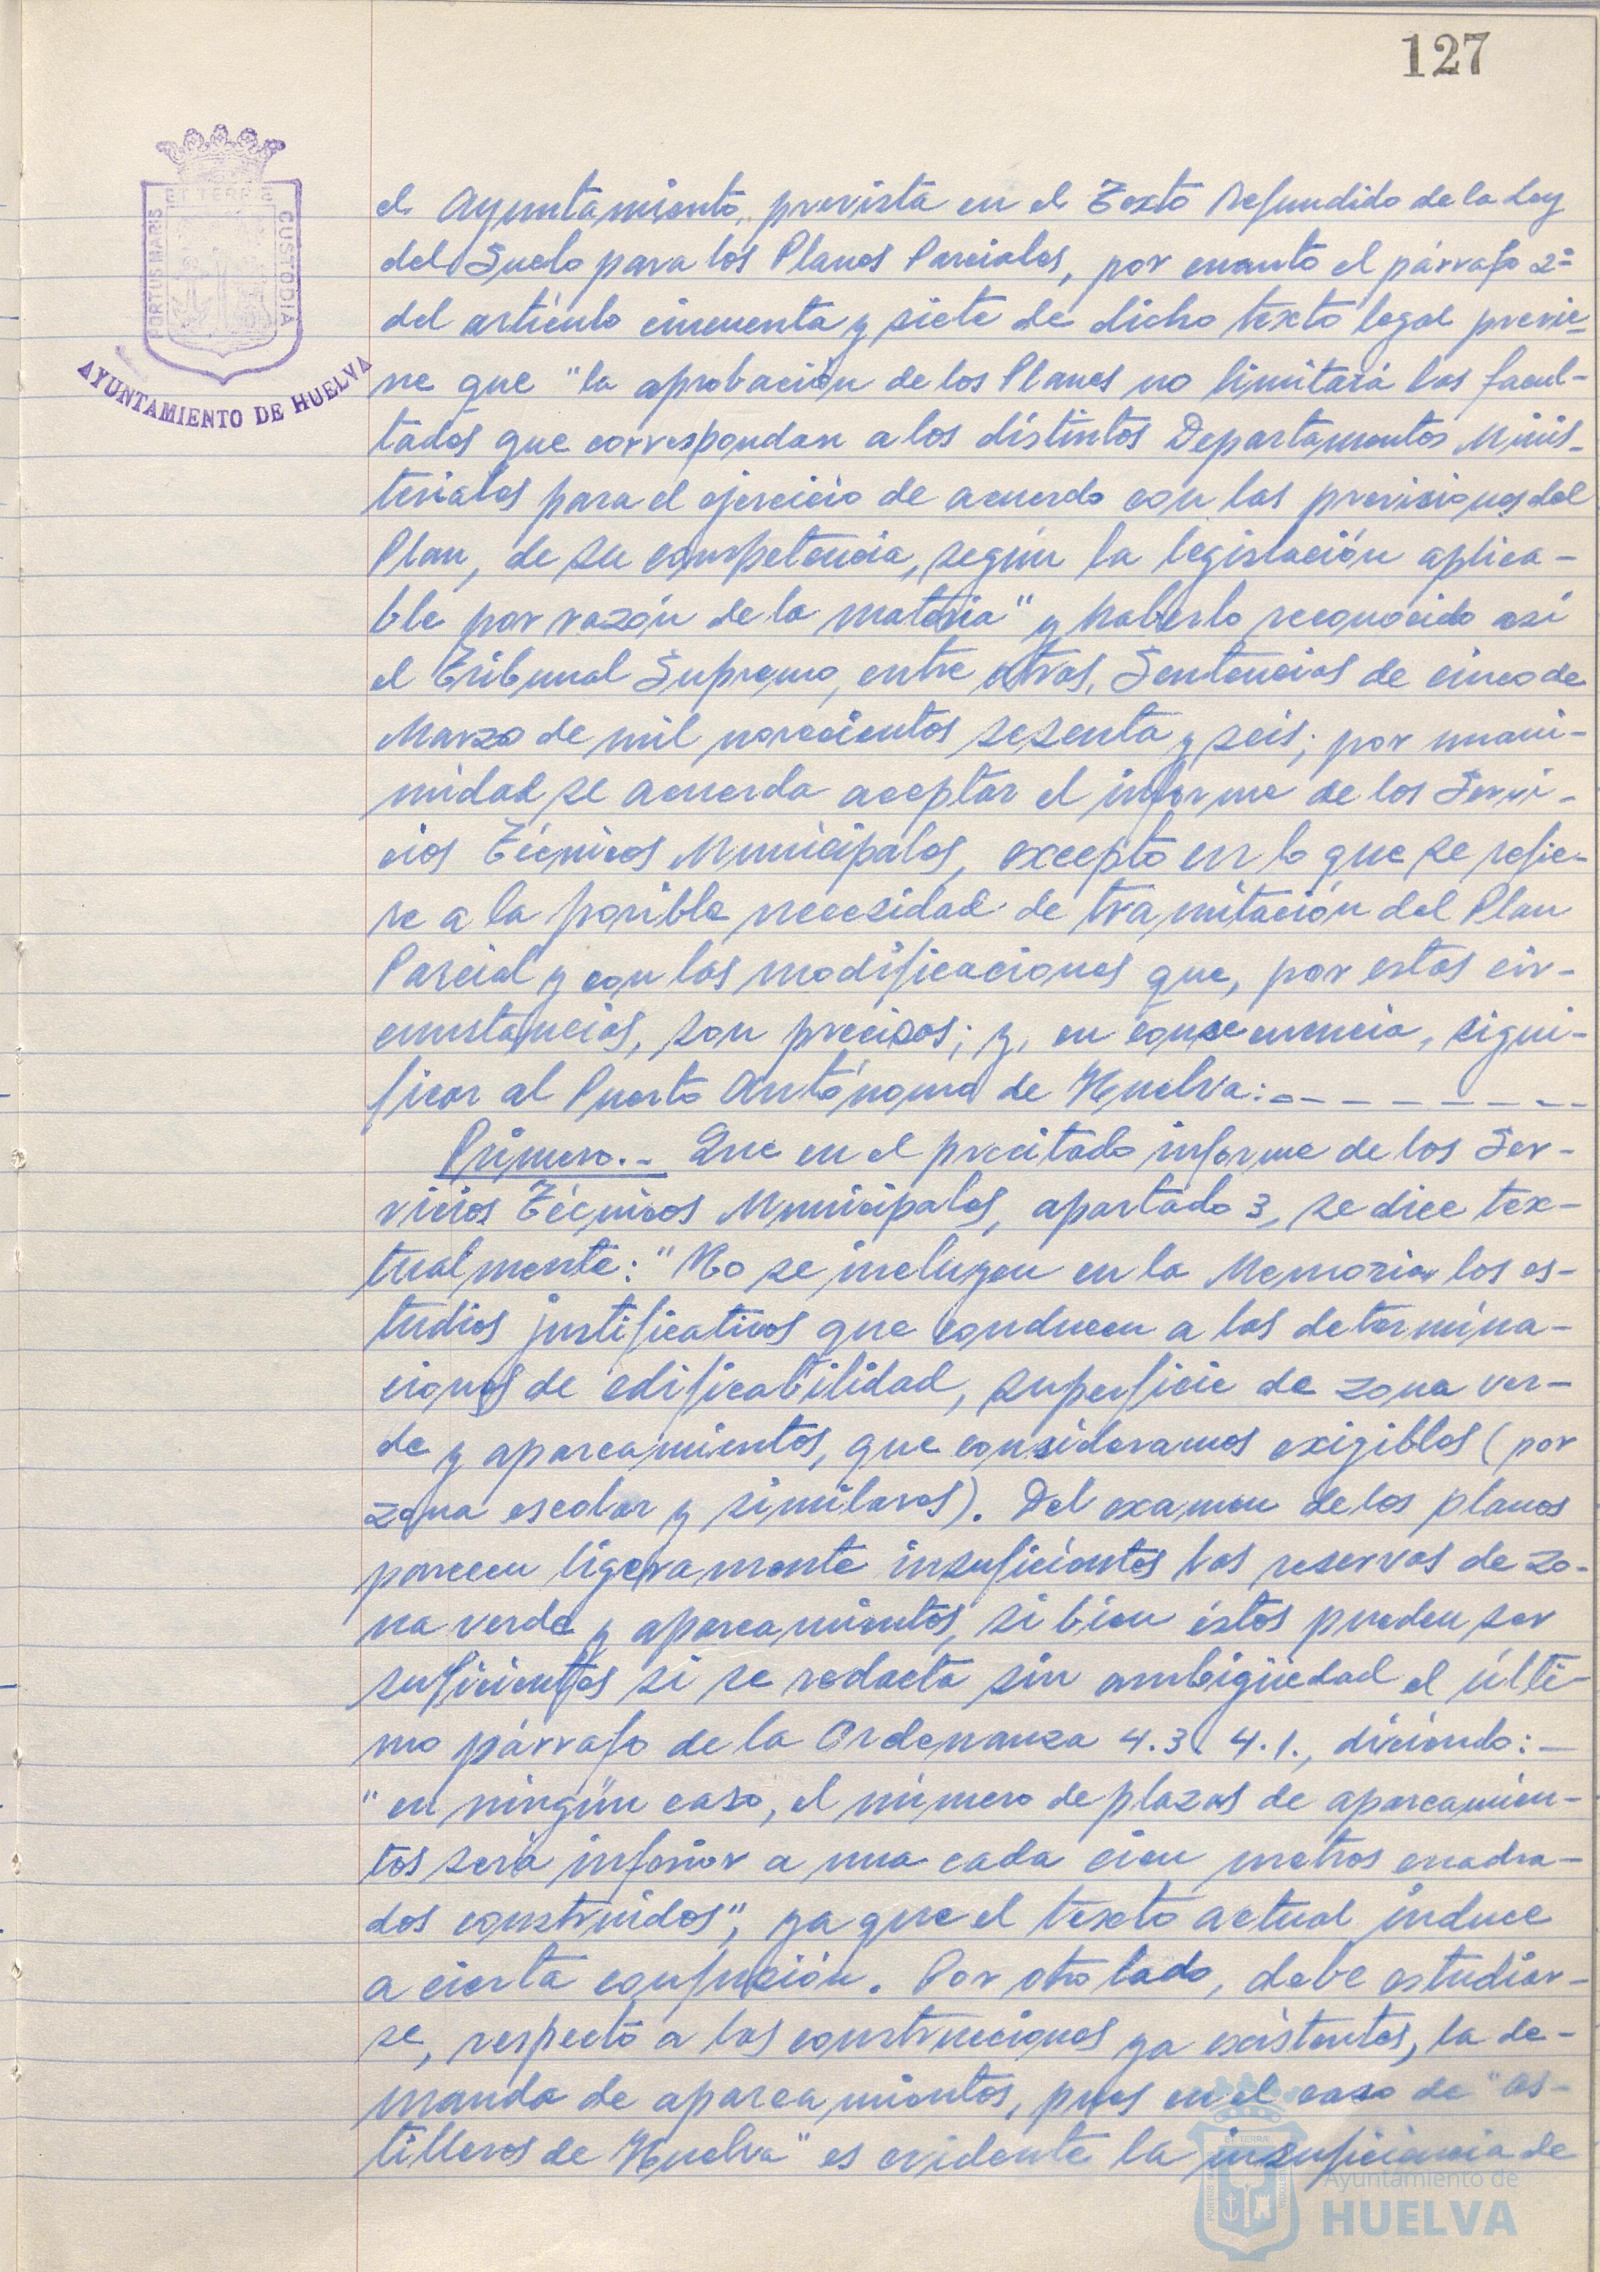 127
ET TERRÆ
PORTUS MARIS
CUSTODIA
AYUNTAMIENTO DE HUELVA
el Ayuntamiento, prevista en el Texto Refundido de la Ley
del Suelo para los Planes Parciales, por cuanto el párrafo 2º
del artículo cincuenta y siete de dicho texto legal previe-
ne que "la aprobación de los Planes no limitará las facul-
tades que correspondan a los distintos Departamentos Minis-
teriales para el ejercicio de acuerdo con las previsiones del
Plan, de su competencia, según la legislación aplica-
ble por razón de la materia" y haberlo reconocido así
el Tribunal Supremo, entre otras, Sentencias de cinco de
Marzo de mil novecientos sesenta y seis; por unani-
midad se acuerda aceptar el informe de los Servi-
cios Técnicos Municipales, excepto en lo que se refie-
re a la posible necesidad de tramitación del Plan
Parcial y con las modificaciones que, por estas cir-
cunstancias, son precisas; y, en consecuencia, signi-
ficar al Puerto Autónomo de Huelva:
Primero.- Que en el precitado informe de los Ser-
vicios Técnicos Municipales, apartado 3, se dice tex-
tualmente: "No se incluyen en la Memoria los es-
tudios justificativos que conducen a las determina-
ciones de edificabilidad, superficie de zona ver-
de y aparcamientos, que consideramos exigibles (por
zona escolar y similares). Del examen de los planos
parecen ligeramente insuficientes las reservas de zo-
na verde y aparcamientos, si bien éstos pueden ser
suficientes si se redacta sin ambigüedad el últi-
mo párrafo de la Ordenanza 4.3.4.1., diciendo:-
"en ningún caso, el número de plazas de aparcamien-
tos será inferior a una cada cien metros cuadra-
dos construidos", ya que el texto actual induce
a cierta confusión. Por otro lado, debe estudiar-
se, respecto a las construcciones ya existentes, la de-
manda de aparcamientos, pues en el caso de "As-
tilleros de Huelva" es evidente la insuficiencia de
Ayuntamiento de
HUELVA